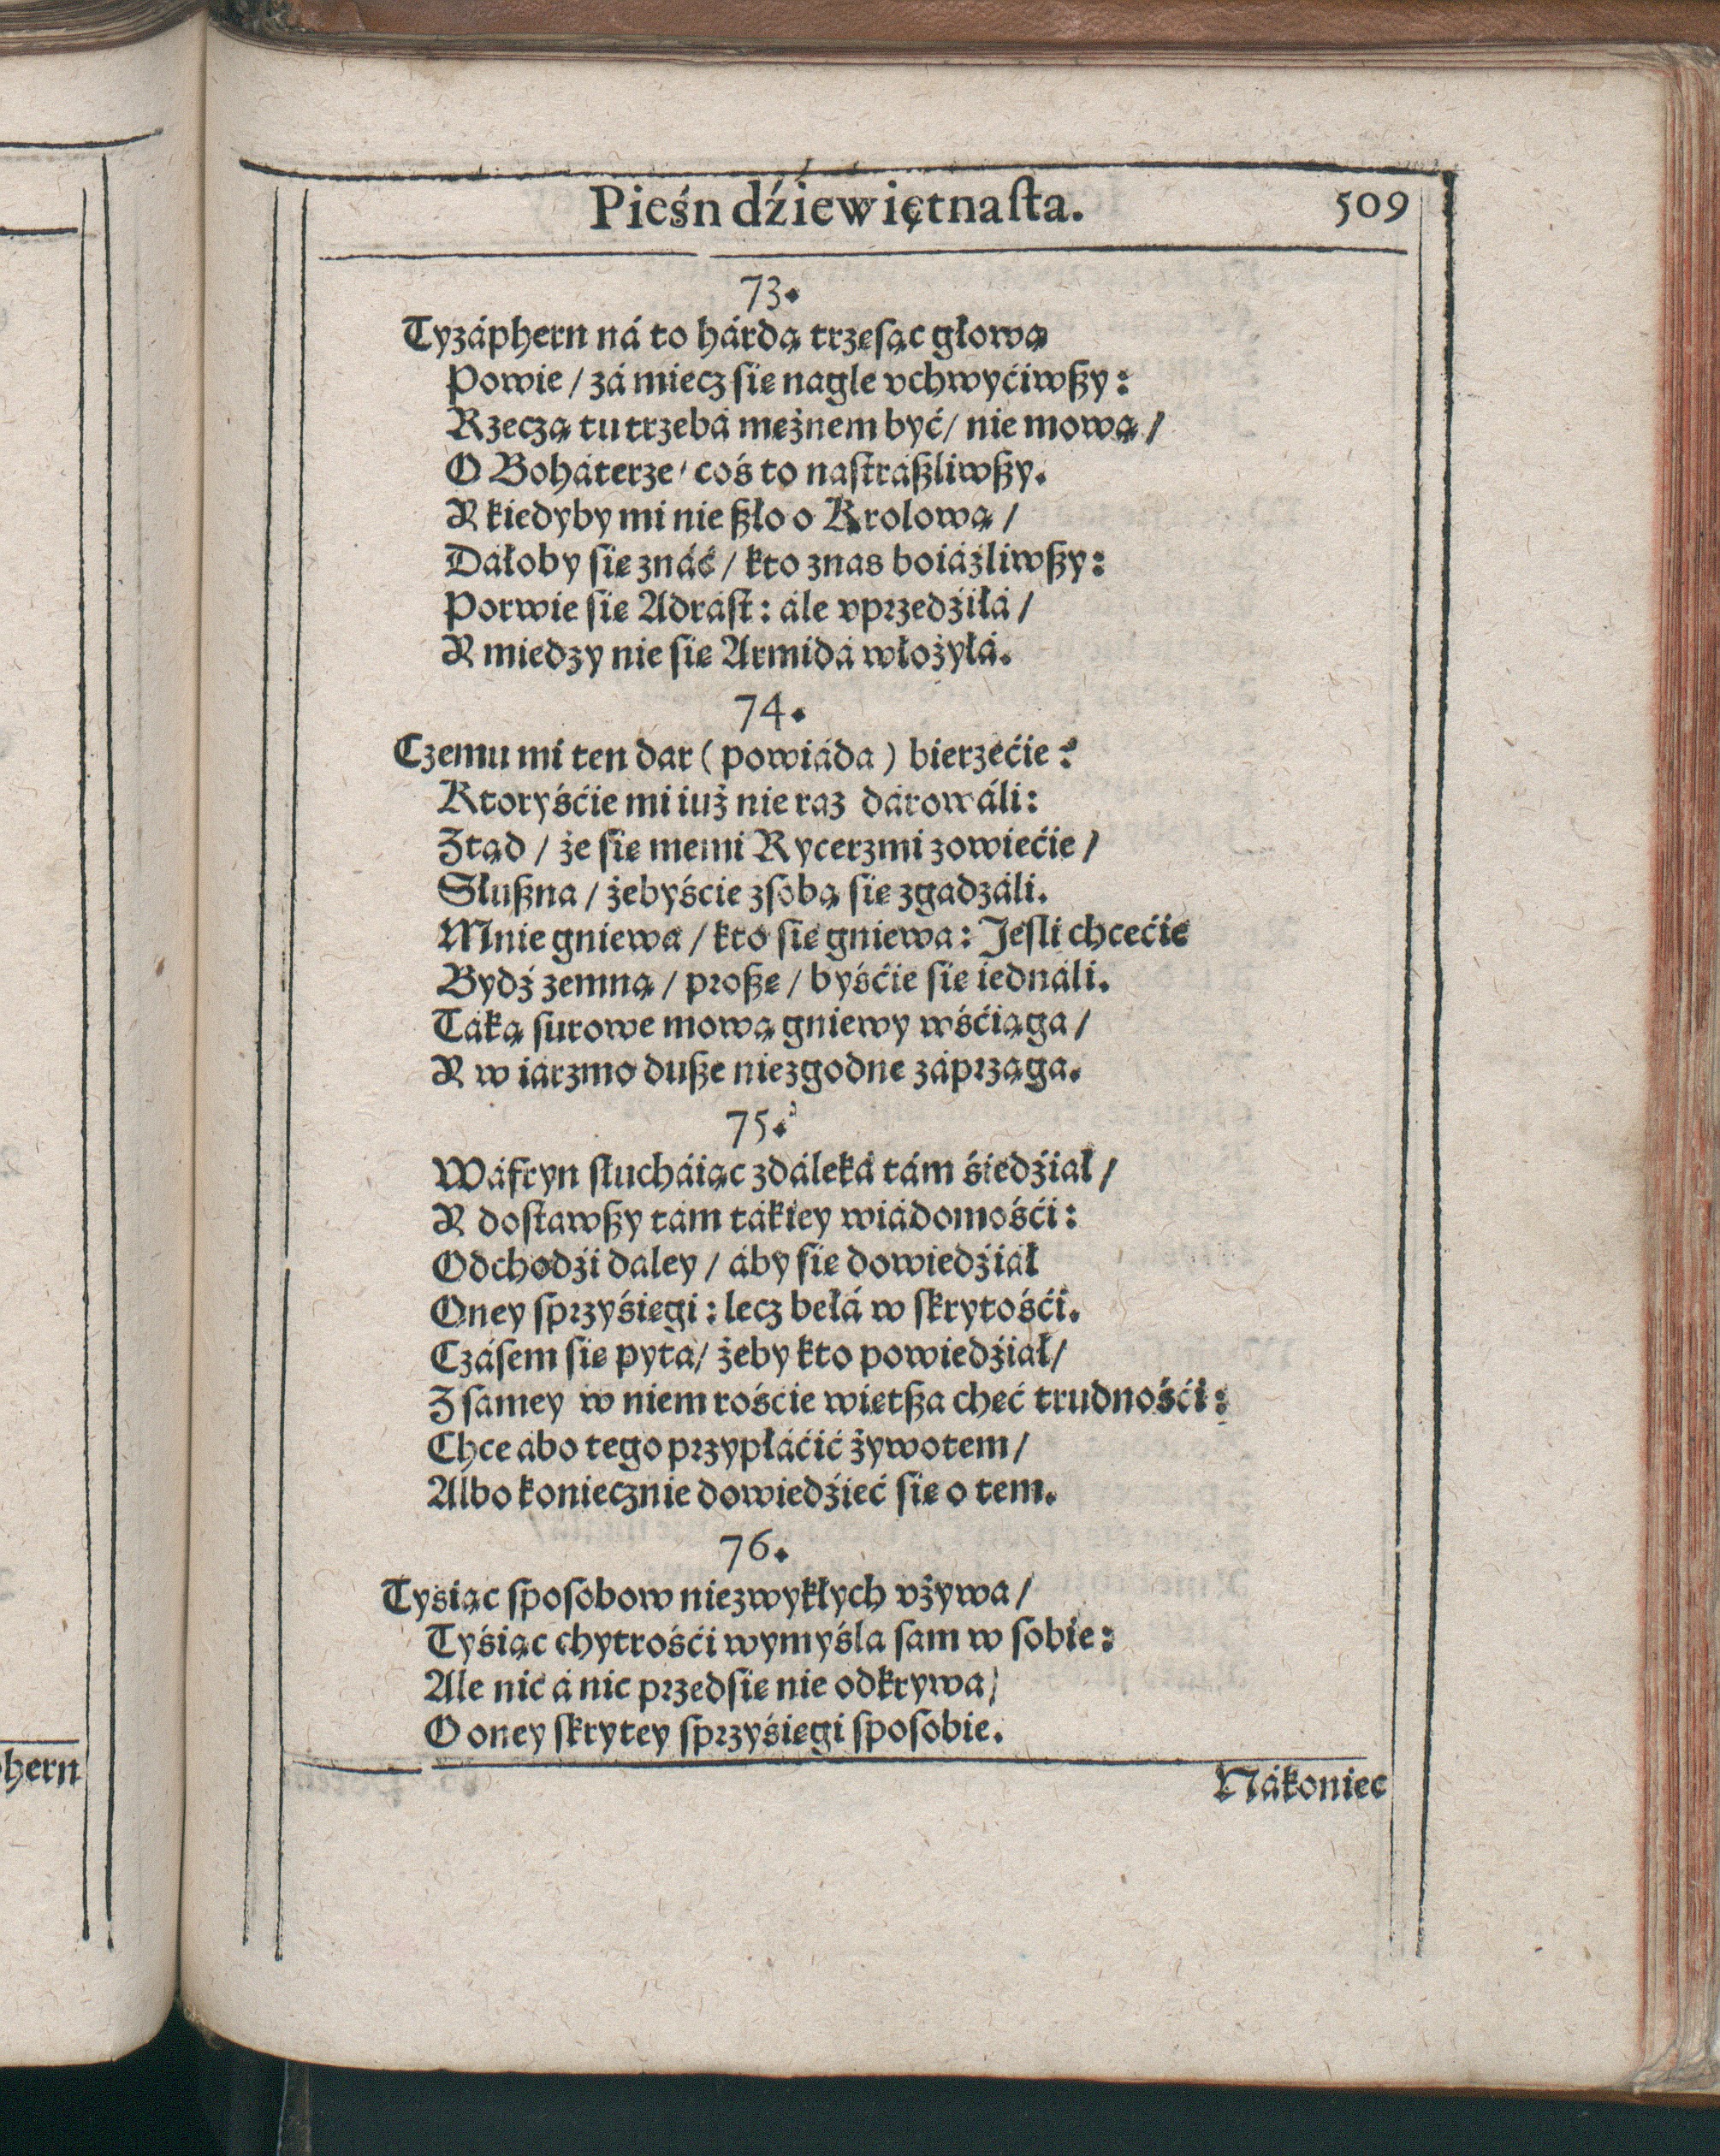 Pieśn dźiewiętnaſta. 509
73.
Tyzáphern ná to hárdą trzęſąc głową
Powie / zá miecz ſię nagle vchwyćiwßy:
Rzeczą tu trzebá mężnem być / nie mową /
O Boháterze / coś to naſtráßliwßy.
A kiedyby mi nie ßło o Krolową /
Dáłoby ſię znáć / kto znas boiáźliwßy:
Porwie ſię Adráſt: ále vprzedźiłá /
A miedzy nie ſię Armidá włożyłá.
74.
Czemu mi ten dar (powiáda) bierzećie?
Ktoryśćie mi iuż nie raz dárowáli:
Ztąd / że ſię memi Rycerzmi zowiećie /
Słußna / żebyśćie zſobą ſię zgadzáli.
Mnie gniewa / kto ſię gniewa: Jeſli chcećie
Bydź zemną / proßę / byśćie ſię iednáli.
Táką ſurowe mową gniewy wśćiąga /
A w iárzmo duße niezgodne záprząga.
75.
Wáfryn ſłucháiąc zdáleká tám śiedźiał /
A doſtawßy tám tákiey wiádomośći:
Odchodźi daley / áby ſię dowiedźiáł
Oney ſprzyśięgi: lecz bełá w ſkrytośći.
Czáſem ſię pyta / żeby kto powiedźiał /
Z ſámey w niem rośćie więtßa chęć trudnośći:
Chce ábo tego przypłáćić żywotem /
Albo koniecznie dowiedźieć ſię o tem.
76.
Tyśiąc ſpoſobow niezwykłych vżywa /
Tyśiąc chytrośći wymyśla ſam w ſobie:
Ale nic á nic przedſię nie odkrywa /
O oney ſkrytey ſprzyśięgi ſpoſobie.
Nákoniec
hern